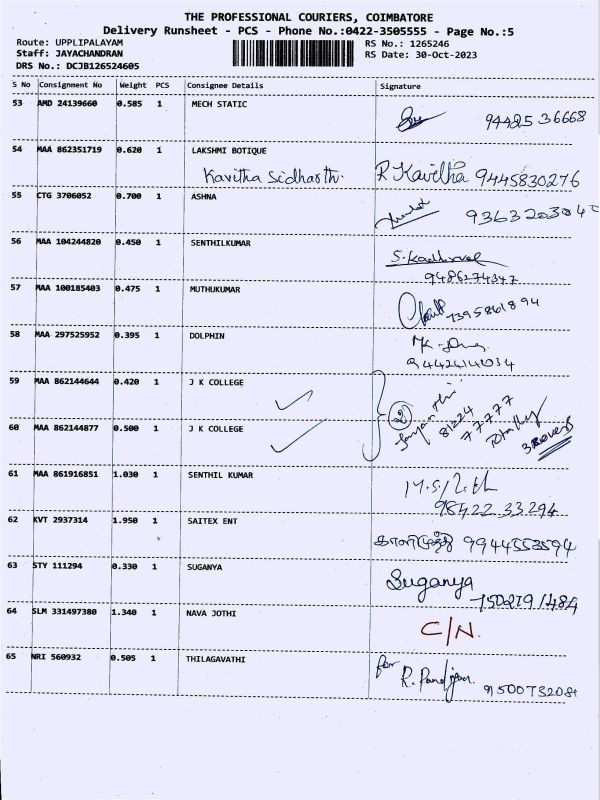 THE PROFESSIONAL COURIERS, COIMBATORE
Delivery Runsheet - PCS - Phone No.:0422-3505555 - Page No.:5
Route: UPPLIPALAYAM RS No.: 1265246
Staff: JAYACHANDRAN RS Date: 30-Oct-2023
DRS No.: DCJB126524605
S No Consignment No Weight PCS Consignee Details Signature
53 AMD 24139660 0.585 1 MECH STATIC
94425 36668
54 MAA 862351719 0.620 1 LAKSHMI BOTIQUE
Kavitha Sidharth R Kavitha 9445830276
55 CTG 3706052 0.700 1 ASHNA
56 MAA 104244820 0.450 1 SENTHILKUMAR
S. Kadhirvel
9486274347
57 MAA 100185403 0.475 1 MUTHUKUMAR
7395861894
58 MAA 297525952 0.395 1 DOLPHIN
59 MAA 862144644 0.420 1 J K COLLEGE
2
81224
77777
Totally
3 covers
60 MAA 862144877 0.500 1 J K COLLEGE
61 MAA 861916851 1.030 1 SENTHIL KUMAR
98422 33294
62 KVT 2937314 1.950 1 SAITEX ENT
9944553594
63 STY 111294 0.330 1 SUGANYA
Suganya
64 SLM 331497380 1.340 1 NAVA JOTHI
C/N.
65 NRI 560932 0.505 1 THILAGAVATHI
for
R. Pandiyan
9500732081